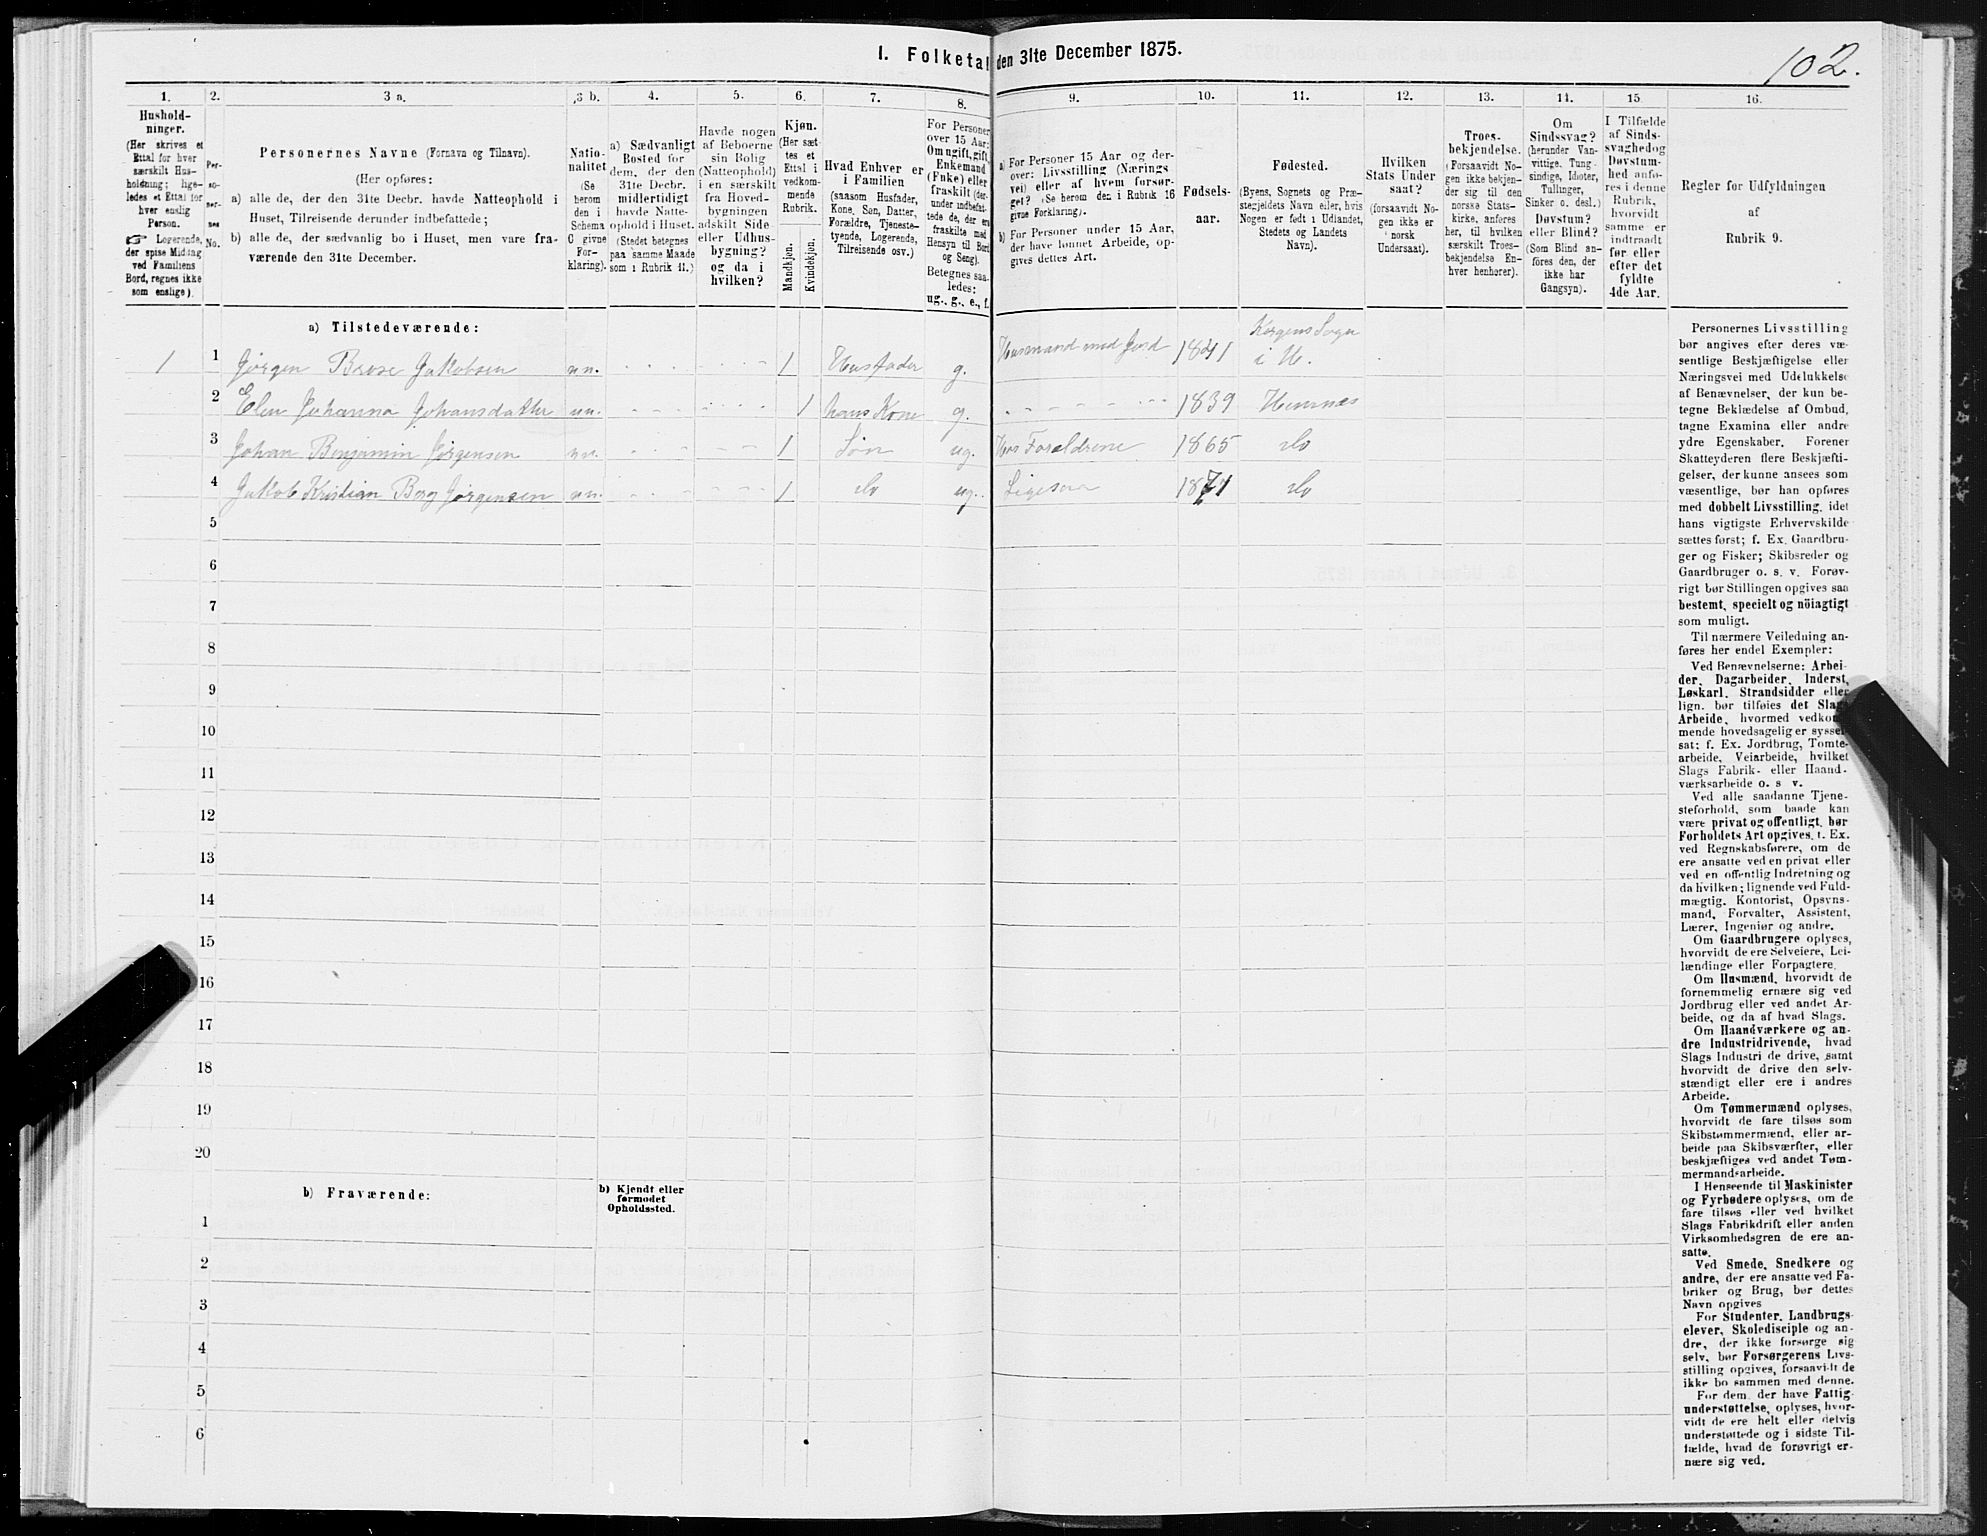 I. Folketal den 31te December 1875.
102.
1.
2.
3 a.
3 b.
4.
5.
6.
7.
8.
9.
10.
11.
12.
13.
14.
15.
16.
Hushold-
ninger.
(Her skrives et
Ettal for hver
særskilt Hus-
holdning; lige-
ledes et Ettal for
hver enslig
Person.
☞ Logerende,
der spise Middag
ved Familiens
Bord, regnes ikke
som enslige).
Per-
so-
ner-
nes
No.
Personernes Navne (Fornavn og Tilnavn).
(Her opføres:
a) alle de, der den 31te Decbr. havde Natteophold i
Huset, Tilreisende derunder indbefattede;
b) alle de, der sædvanlig bo i Huset, men vare fra-
værende den 31te December.
Natio-
nalitet
(Se
herom
den i
Schema
C givne
For-
klaring).
a) Sædvanligt
Bosted for
dem, der den
31te Decbr.
midlertidigt
havde Natte-
ophold i Huset.
(Stedet betegnes
paa samme Maade
som i Rubrik 11.)
Havde nogen
af Beboerne
sin Bolig
(Natteophold)
i en særskilt
fra Hoved-
bygningen
adskilt Side-
eller Udhus-
bygning?
og da i
hvilken?
Kjøn.
(Her sæt-
tes et
Ettal i
vedkom-
mende
Rubrik.
Mandkjøn.
Kvindekjøn.
Hvad Enhver er
i Familien
(saasom Husfader,
Kone, Søn, Datter,
Forældre, Tjeneste-
tyende, Logerende,
Tilreisende osv.)
For Personer
over 15 Aar:
Om ugift, gift,
Enkemand
(Enke) eller
fraskilt (der-
under indbefat-
tede de, der ere
fraskilte med
Hensyn til Bord
og Seng).
Betegnes saa-
ledes:
ug., g., e., f.
a) For Personer 15 Aar og der-
over: Livsstilling (Nærings-
vei) eller af hvem forsør-
get? (Se herom den i Rubrik 16
givne Forklaring).
b) For Personer under 15 Aar,
der have lønnet Arbeide, op-
gives dettes Art.
Fødsels-
aar.
Fødested.
(Byens, Sognets og Præ-
stegjeldets Navn eller, hvis
Nogen er født i Udlandet,
Stedets og Landets
Navn).
Hvilken
Stats Under
saat?
(forsaavidt No-
gen ikke er
norsk
Undersaat).
Troes-
bekjendelse.
(Forsaavidt No-
gen ikke bekjen-
der sig til den
norske Stats-
kirke, anføres
her, til hvilken
særskilt Troes-
bekjendelse En-
hver henhører).
Om
Sindssvag?
(herunder Van-
vittige, Tung-
sindige, Idioter,
Tullinger,
Sinker o. desl.)
Døvstum?
eller Blind?
(Som Blind an-
føres den, der
ikke har
Gangsyn).
I Tilfælde
af Sinds-
svaghed og
Døvstum-
hed anfø-
res i denne
Rubrik,
hvorvidt
samme er
indtraadt
før eller
efter det
fyldte
4de Aar.
Regler for Udfyldningen
af
Rubrik 9.
a) Tilstedeværende:
1 1 Jørgen Brose Jakobsen nn. 1 Husfader g. Husmand med Jord 1841 Korgens Sogn i H.
2 Elen Johanna Johansdatter nn. 1 hans Kone g. 1839 Hemnæs
3 Johan Benjamin Jørgensen nn. 1 Søn ug. Hos Forældrene 1865 do
4 Jakob Kristian Berg Jørgensen nn. 1 do ug. Ligesaa 1871 do
5
6
7
8
9
10
11
12
13
14
15
16
17
18
19
20
b) Fraværende:
b) Kjendt eller
formodet
Opholdssted.
1
2
3
4
5
6
Personernes Livsstilling
bør angives efter deres væ-
sentlige Beskjæftigelse eller
Næringsvei med Udelukkelse
af Benævnelser, der kun be-
tegne Beklædelse af Ombud,
tagne Examina eller andre
ydre Egenskaber. Forener
Skatteyderen flere Beskjæfti-
gelser, der kunne ansees som
væsentlige, bør han opføres
med dobbelt Livsstilling, idet
hans vigtigste Erhvervskilde
sættes først; f. Ex. Gaardbru-
ger og Fisker; Skibsreder og
Gaardbruger o. s. v. Forøv-
rigt bør Stillingen opgives saa
bestemt, specielt og nöiagtigt
som muligt.
Til nærmere Veiledning an-
føres her endel Exempler:
Ved Benævnelserne: Arbei-
der, Dagarbeider, Inderst,
Løskarl, Strandsidder eller
lign. bør tilføies det Slags
Arbeide, hvormed vedkom-
mende hovedsagelig er syssel-
sat; f. Ex. Jordbrug, Tomte-
arbeide, Veiarbeide, hvilket
Slags Fabrik- eller Haand-
værksarbeide o. s v.
Ved alle saadanne Tjene-
steforhold, som baade kan
være privat og offentligt, bør
Forholdets Art opgives, t. Ex.
ved Regnskabsførere, om de
ere ansatte ved en privat eller
ved en offentlig Indretning og
da hvilken; lignende ved Fuld-
mægtig, Kontorist, Opsyns-
mand, Forvalter, Assistent,
Lærer, Ingeniør og andre.
Om Gaardbrugere oplyses,
hvorvidt de ere Selveiere, Lei-
lændinge eller Forpagtere.
Om Husmænd, hvorvidt de
fornemmelig ernære sig ved
Jordbrug eller ved andet Ar-
beide, og da af hvad Slags.
Om Haandværkere og an-
dre Industridrivende, hvad
Slags Industri de drive, samt
hvorvidt de drive den selv-
stændigt eller ere i andres
Arbeide.
Om Tømmermænd oplyses,
hvorvidt de fare tilsøs som
Skibstømmermænd, eller ar-
beide paa Skibsværfter, eller
beskjæftiges ved andet Tøm-
mermandsarbeide.
I Henseende til Maskinister
og Fyrbødere oplyses, om de
fare tilsøs eller ved hvilket
Slags Fabrikdrift eller anden
Virksomhedsgren de ere an-
satte.
Ved Smede, Snedkere og
andre, der ere ansatte ved Fa-
briker og Brug, bør dettes
Navn opgives
For Studenter, Landbrugs-
elever, Skoledisciple og an-
dre, der ikke forsørge sig
selv, bør Forsørgerens Livs-
stilling opgives, forsaavidt de
ikke bo sammen med denne.
For dem, der have Fattig-
understøttelse, oplyses, hvor-
vidt de ere helt eller delvis
understøttede og i sidste Til-
fælde, hvad de forøvrigt er-
nære sig ved.